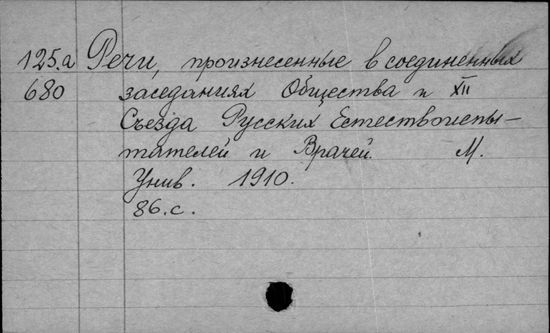 125.а Речи, произнесенные в соединенных
680 заседаниях Общества и XII
Съезда Русских Естествоиспы-
тателей и Врачей. М.
Унив. 1910.
86.с.